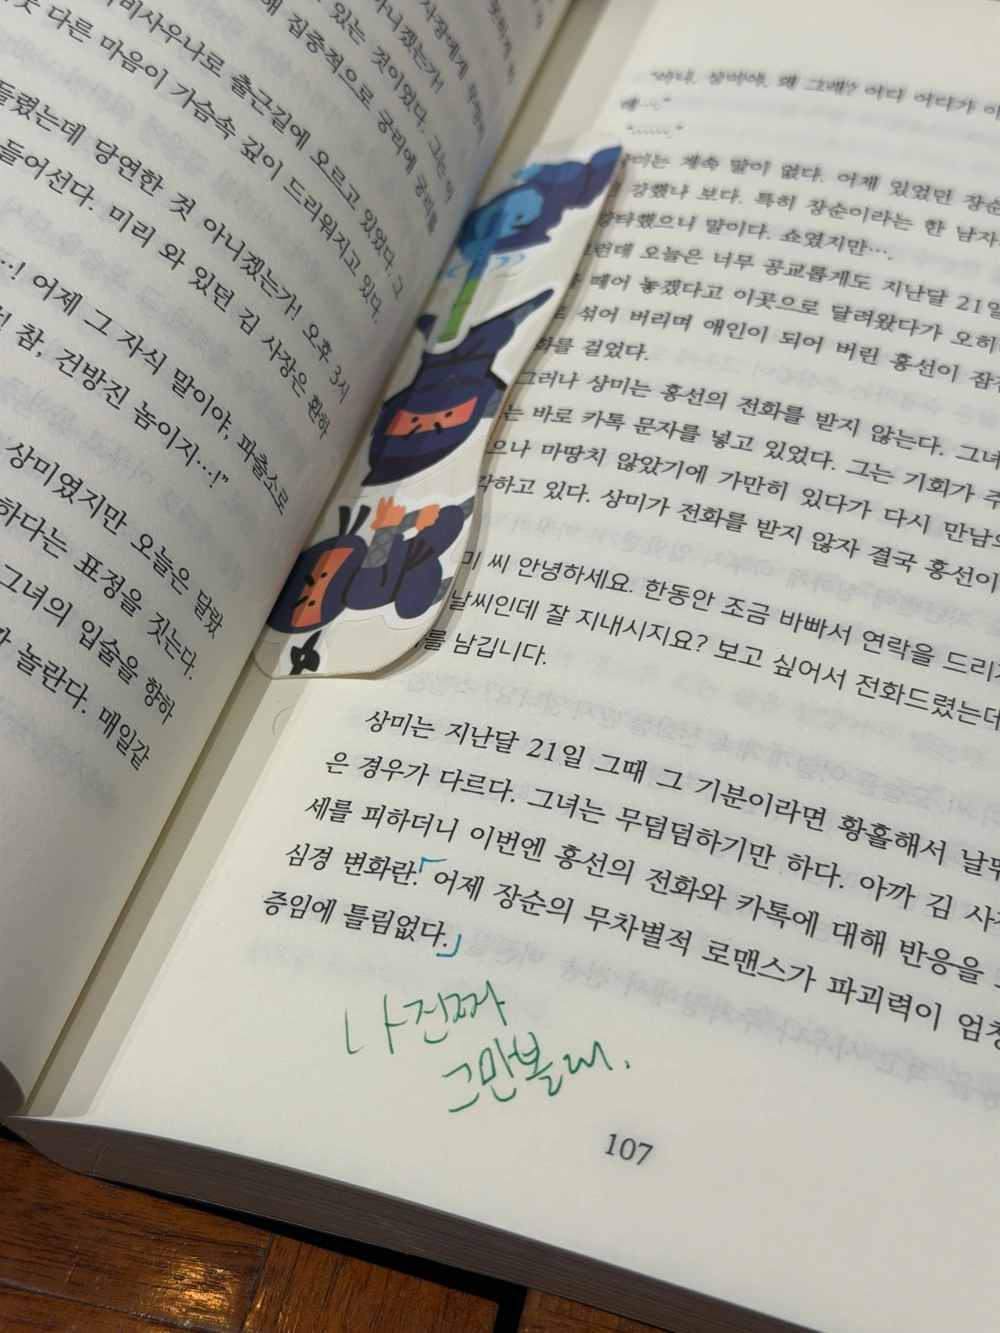 비사우나로 출근길에 오르고 있었다. 그
다른 마음이 가슴속 깊이 드리워지고 있다.
들렸는데 당연한 것 아니겠는가! 오후 3시
들어선다. 미리 와 있던 김 사장은 환하
어제 그 자식 말이야, 파출소로
참, 건방진 놈이지…!”
상미였지만 오늘은 달랐
하다는 표정을 짓는다.
그녀의 입술을 향하
놀란다. 매일같
왜 그래? 어디
“…….”
계속 말이 없다. 어제 있었던 장순
강했나 보다. 특히 장순이라는 한 남자
강타했으니 말이다. 쇼였지만….
그런데 오늘은 너무 공교롭게도 지난달 21일
떼어 놓겠다고 이곳으로 달려왔다가 오히
섞어 버리며 애인이 되어 버린 홍선이 잠
화를 걸었다.
그러나 상미는 홍선의 전화를 받지 않는다. 그녀
는 바로 카톡 문자를 넣고 있었다. 그는 기회가 주
으나 마땅치 않았기에 가만히 있다가 다시 만남의
각하고 있다. 상미가 전화를 받지 않자 결국 홍선이
미 씨 안녕하세요. 한동안 조금 바빠서 연락을 드리
날씨인데 잘 지내시지요? 보고 싶어서 전화드렸는데
를 남깁니다.
상미는 지난달 21일 그때 그 기분이라면 황홀해서 날뛰
은 경우가 다르다. 그녀는 무덤덤하기만 하다. 아까 김 사
세를 피하더니 이번엔 홍선의 전화와 카톡에 대해 반응을
심경 변화란. 어제 장순의 무차별적 로맨스가 파괴력이 엄청
증임에 틀림없다.
나 진짜
그만볼래.
107